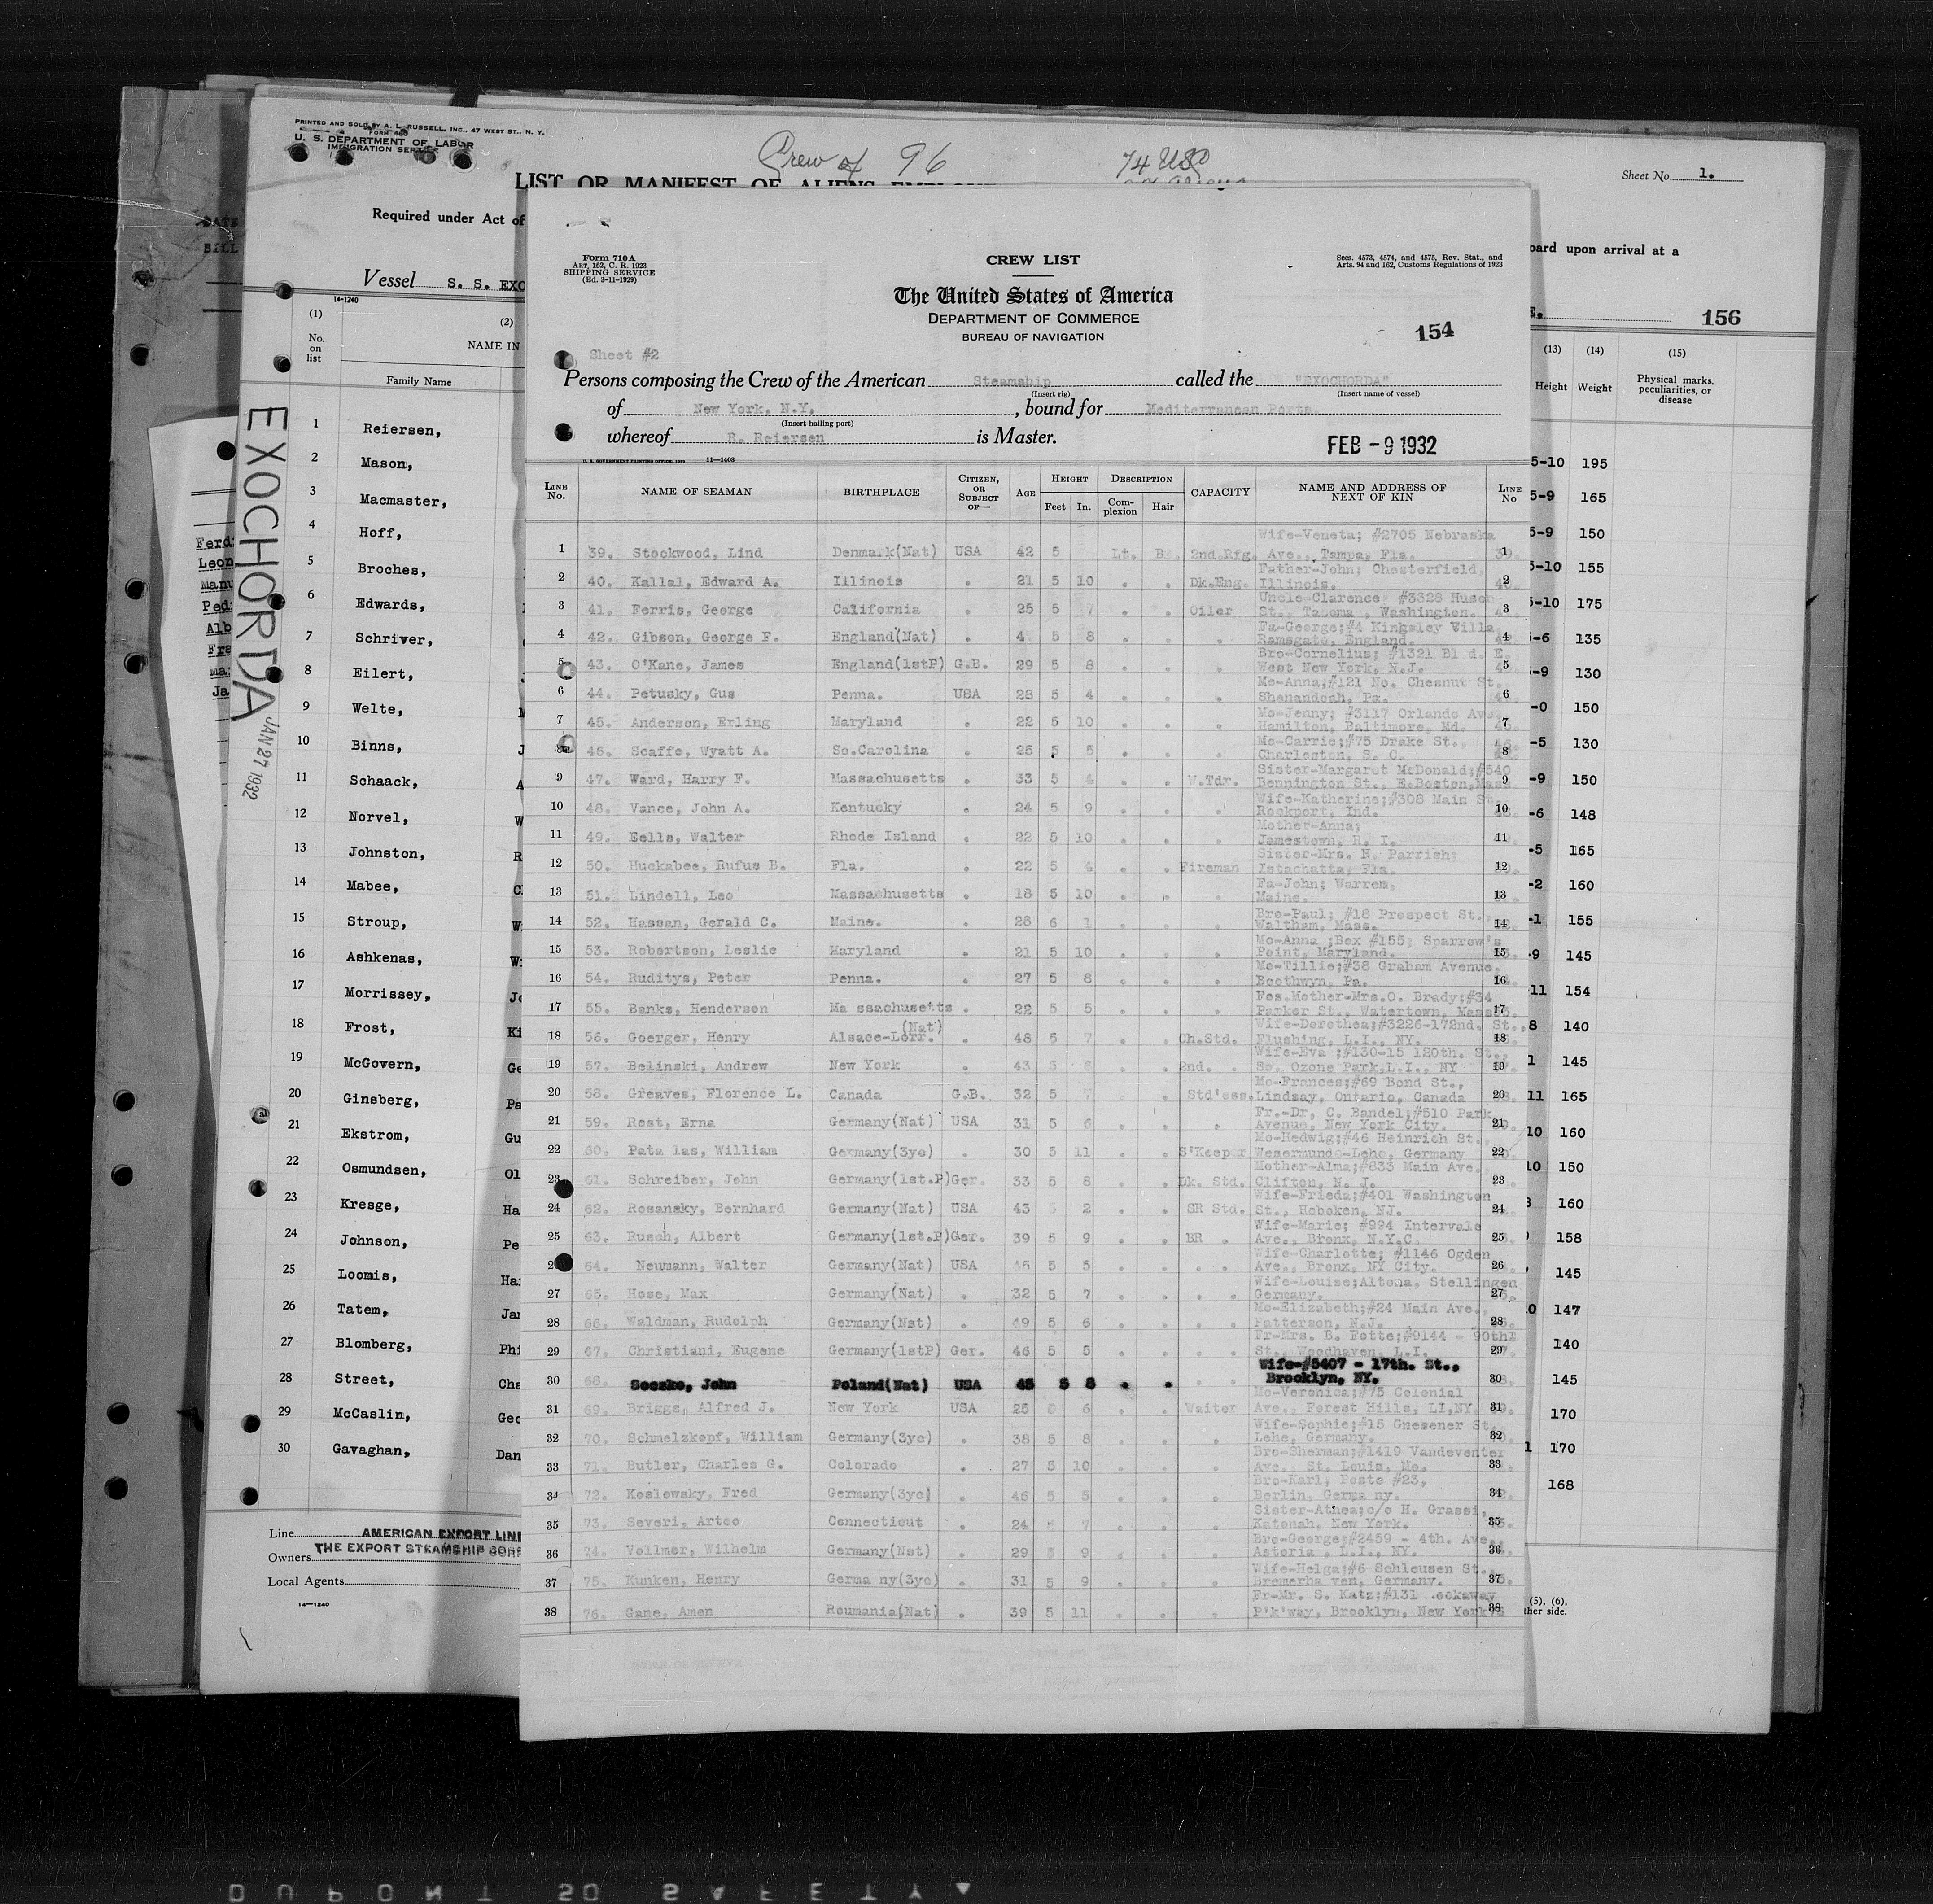 PRINTED AND SOLD BY A. L. RUSSELL, INC., 47 WEST ST., N. Y.
FORM 680
U. S. DEPARTMENT OF LABOR
IMMIGRATION SERVICE
Crew of 96
74 USC
LIST OR MANIFEST OF ALIENS
Sheet No. 1.
Required under Act of
board upon arrival at a
Vessel S. S. EXO
156
14-1240
(1)
(2)
No. on list
NAME IN
Family Name
(13) (14) (15)
Height Weight Physical marks, peculiarities, or disease
EXOCHORDA
JAN 27 1932
1 Reiersen,
2 Mason,
3 Macmaster,
4 Hoff,
5 Broches,
6 Edwards,
7 Schriver,
8 Eilert,
9 Welte,
10 Binns,
11 Schaack,
12 Norvel,
13 Johnston,
14 Mabee,
15 Stroup,
16 Ashkenas,
17 Morrissey,
18 Frost,
19 McGovern,
20 Ginsberg,
21 Ekstrom,
22 Osmundsen,
23 Kresge,
24 Johnson,
25 Loomis,
26 Tatem,
27 Blomberg,
28 Street,
29 McCaslin,
30 Gavaghan,
Line AMERICAN EXPORT LIN
Owners THE EXPORT STEAMSHIP CORP
Local Agents
14-1240
Form 710 A
ART. 162, C. R. 1923
SHIPPING SERVICE
(Ed. 3-11-1929)
CREW LIST
Secs. 4573, 4574, and 4575, Rev. Stat., and
Arts. 94 and 162, Customs Regulations of 1923
The United States of America
DEPARTMENT OF COMMERCE
BUREAU OF NAVIGATION
154
Sheet #2
Persons composing the Crew of the American Steamship called the "EXOCHORDA"
(Insert rig) (Insert name of vessel)
of New York, N.Y. , bound for Mediterranean Ports
(Insert hailing port)
whereof R. Reiersen is Master.
FEB - 9 1932
11-1408
LINE No. NAME OF SEAMAN BIRTHPLACE CITIZEN, OR SUBJECT OF— AGE HEIGHT Feet In. DESCRIPTION Complexion Hair CAPACITY NAME AND ADDRESS OF NEXT OF KIN LINE No
Wife-Veneta; #2705 Nebraska
1 39. Stockwood, Lind Denmark(Nat) USA 42 5 Lt. 2nd.Rfg. Ave., Tampa, Fla. 1
Father-John; Chesterfield,
2 40. Kallal, Edward A. Illinois " 21 5 10 " " Dk.Eng. Illinois. 2
Uncle-Clarence #3328 Huson
3 41. Ferris, George California " 25 5 7 " " Oiler St., Tacoma, Washington. 3
Fa-George;#4 Kingsley Villa
4 42. Gibson, George F. England(Nat) " 5 8 " " " Ramsgate, England. 4
Bro-Cornelius; #1321 E.
5 43. O'Kane, James England(1stP) G.B. 29 5 8 " " " West New York, N.J. 5
Mo-Anna,#121 No. Chesnut St.
6 44. Petusky, Gus Penna. USA 28 5 4 " " " Shenandoah, Pa. 6
Mo-Jenny; #3117 Orlando Ave
7 45. Anderson, Erling Maryland " 22 5 10 " " " Hamilton, Baltimore, Md. 7
Mo-Carrie;#75 Drake St.,
8 46. Scaffe, Wyatt A. So.Carolina " 25 5 5 " " " Charleston, S. C. 8
Sister-Margaret McDonald;#540
9 47. Ward, Harry F. Massachusetts " 33 5 4 " " W.Tdr. Bennington St., E.Boston,Mass. 9
Wife-Katherine;#308 Main St.
10 48. Vance, John A. Kentucky " 24 5 9 " " " Rockport, Ind. 10
Mother-Anna;
11 49. Eells, Walter Rhode Island " 22 5 10 " " " Jamestown, R. I. 11
Sister-Mrs. N. Parrish;
12 50. Huckabee, Rufus B. Fla. " 22 5 4 " " Fireman Istachatta, Fla. 12
Fa-John; Warren,
13 51. Lindell, Leo Massachusetts " 18 5 10 " " " Maine. 13
Bro-Paul; #18 Prospect St.,
14 52. Hassan, Gerald C. Maine. " 28 6 1 " " " Waltham, Mass. 14
Mo-Anna ;Box #155; Sparrow's
15 53. Robertson, Leslie Maryland " 21 5 10 " " " Point, Maryland. 15
Mo-Tillie;#38 Graham Avenue,
16 54. Ruditys, Peter Penna. " 27 5 8 " " " Boothwyn, Pa. 16
Fos.Mother-Mrs.O. Brady;#34
17 55. Banks, Henderson Ma ssachusetts " 22 5 5 " " " Parker St., Watertown, Mass. 17
Wife-Dorothea;#3226-172nd. St.,
18 56. Goerger, Henry Alsace-Lorr. (Nat) " 48 5 7 " " Ch.Std. Flushing, L.I., NY. 18
Wife-Eva ;#130-15 120th. St.,
19 57. Belinski, Andrew New York " 43 5 6 " " 2nd. " So. Ozone Park,L.I., NY 19
Mo-Frances;#69 Bond St.,
20 58. Greaves, Florence L. Canada G.B. 32 5 7 " " Std'ess. Lindsay, Ontario, Canada 20
Fr.-Dr. C. Bandel;#510 Park
21 59. Rost, Erna Germany(Nat) USA 31 5 6 " " " Avenue, New York City. 21
Mo-Hedwig;#46 Heinrich St.,
22 60. Pata las, William Germany(3yc) " 30 5 11 " " S'Keeper Wesermunde-Lehe, Germany 22
Mother-Alma;#833 Main Ave.,
23 61. Schreiber, John Germany(1st.P) Ger. 33 5 8 " " Dk. Std. Clifton, N. J. 23
Wife-Frieda;#401 Washington
24 62. Rosansky, Bernhard Germany(Nat) USA 43 5 2 " " SR Std. St., Hoboken, NJ. 24
Wife-Marie; #994 Intervale
25 63. Rusch, Albert Germany(1st.P) Ger. 39 5 9 " " BR " Ave., Bronx, N.Y.C. 25
Wife-Charlotte; #1146 Ogden
26 64. Neumann, Walter Germany(Nat) USA 45 5 5 " " " " Ave., Bronx, NY City. 26
Wife-Louise;Altona, Stellingen
27 65. Hose, Max Germany(Nat) " 32 5 7 " " " " Germany. 27
Mo-Elizabeth;#24 Main Ave.,
28 66. Waldman, Rudolph Germany(Nat) " 49 5 6 " " " " Patterson, N.J. 28
Fr-Mrs. B. Fette;#9144 - 90th
29 67. Christiani, Eugene Germany(1stP) Ger. 46 5 5 " " " " St., Woodhaven, L.I. 29
Wife-#5407 - 17th. St.,
30 68. Soczko, John Poland(Nat) USA 45 5 8 " " " " Brooklyn, NY. 30
Mo-Veronica;#75 Colonial
31 69. Briggs, Alfred J. New York USA 25 5 6 " " Waiter Ave., Forest Hills, LI,NY. 31
Wife-Sophie;#15 Gnesener St.
32 70. Schmelzkopf, William Germany(3yc) " 38 5 8 " " " Lehe, Germany. 32
Bro-Sherman;#1419 Vandeventer
33 71. Butler, Charles G. Colorado " 27 5 10 " " " Ave., St. Louis, Mo. 33
Bro-Karl; Poste #23,
34 72. Koslowsky, Fred Germany(3yc) " 46 5 5 " " " Berlin, Germa ny. 34
Sister-Athea;c/o H. Grassi,
35 73. Severi, Arteo Connecticut " 24 5 7 " " " Katonah, New York. 35
Bro-George;#2459 - 4th. Ave.,
36 74. Vollmer, Wilhelm Germany(Nat) " 29 5 9 " " " Astoria, L.I., NY. 36
Wife-Helga;#6 Schleusen St.,
37 75. Kunken, Henry Germa ny(3yc) " 31 5 9 " " " Bremerha ven, Germany. 37
Fr-Mr. S. Katz;#131
38 76. Gane, Amen Roumania(Nat) " 39 5 11 " " " P'k'way, Brooklyn, New York 38
5-10 195
5-9 165
5-9 150
5-10 155
5-10 175
5-6 135
-9 130
-0 150
-5 130
-9 150
-6 148
-5 165
-2 160
-1 155
-9 145
11 154
8 140
1 145
11 165
10 160
10 150
160
158
145
0 147
140
145
170
1 170
168
(5), (6),
ther side.
DUPONT 50 SAFETY